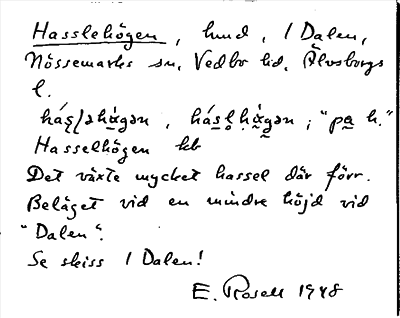 Hasslehögen, hmd, I Dalen,
Nössemarks sn, Vedbo hd, Älvsborgs
l.
"pa h."
Hasselhögen kb
Det växte mycket hassel där förr.
Beläget vid en mindre höjd vid
"Dalen".
Se skiss I Dalen!
E. Rosell 1948